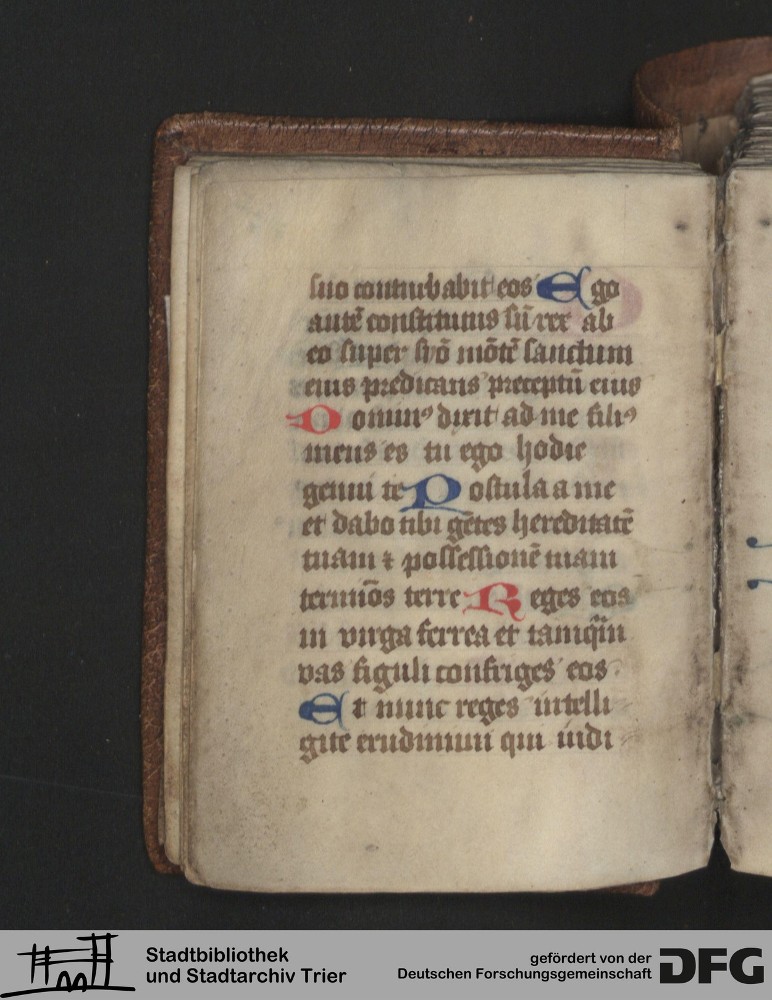 suo conturbabit eos Ego
autē constitutus sū rex ab
eo super syō mōtē sanctum
eius predicans preceptū eius
Dominꝰ dixit ad me filiꝰ
meus es tu ego hodie
genui te Postula a me
et dabo tibi gētes hereditatē
tuam ⁊ possessionē tuam
terminōs terre Reges eos
in virga ferrea et tamq̄m
vas figuli confriges eos
Et nunc reges intelli
gite erudimini qui iudi
Stadtbibliothek
und Stadtarchiv Trier
gefördert von der
Deutschen Forschungsgemeinschaft
DFG